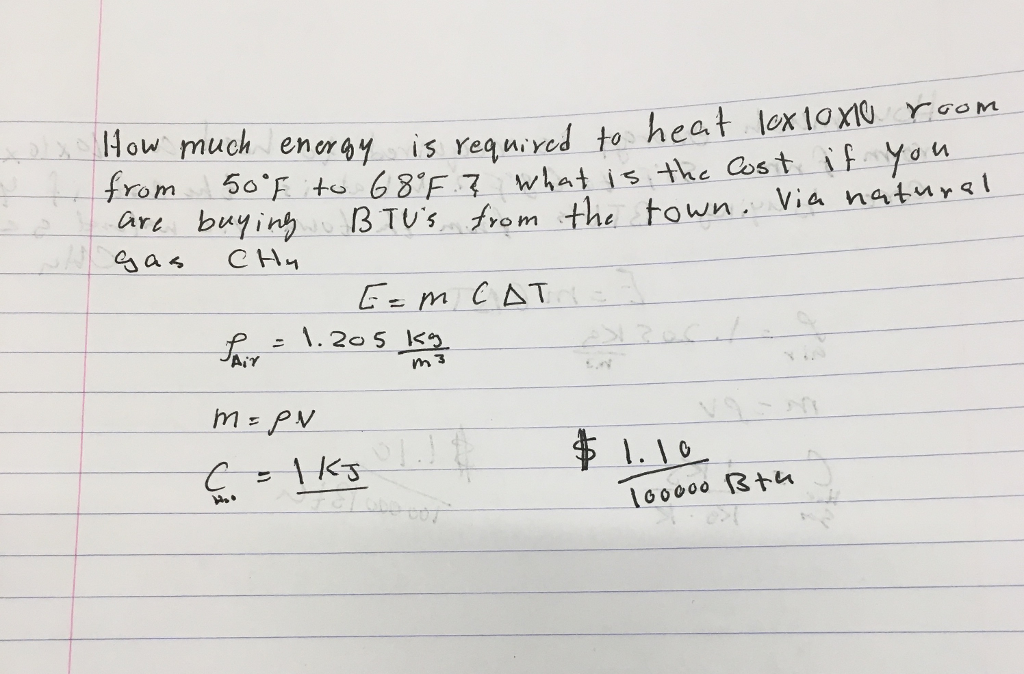 How much energy is required to heat 10x10x10 room
from 50°F to 68°F? What is the Cost if you
are buying BTU's from the town. Via natural
gas CH4
E = m C ΔT
ρAir = 1.205 kg/m3
m = ρV
C = 1 KJ
$ 1.10 / 100000 Btu